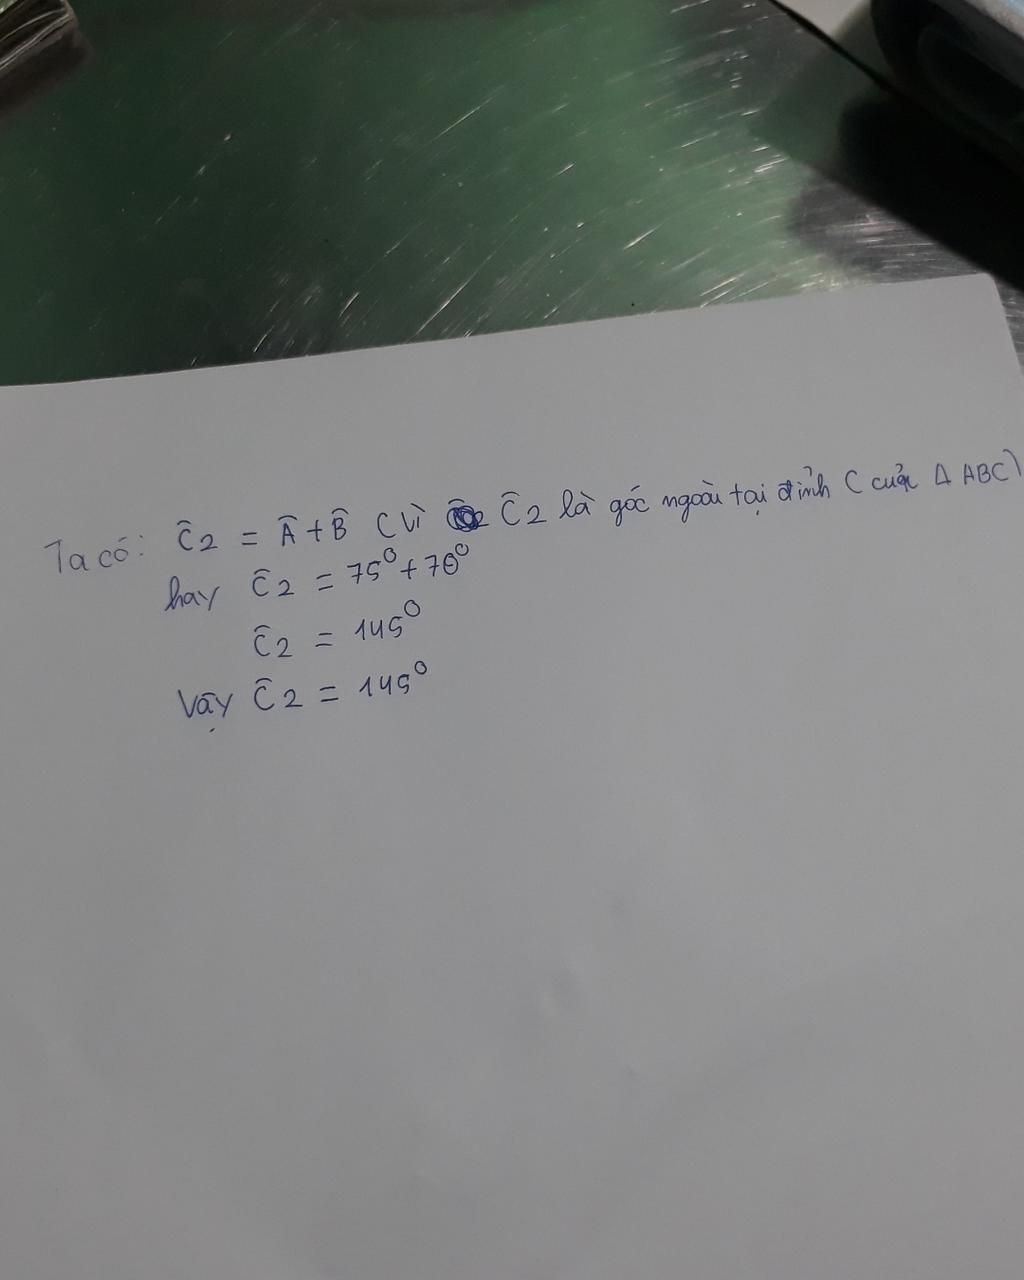 Ta có: Ĉ2 = Â + B̂ (Vì Ĉ2 là góc ngoài tại đỉnh C của Δ ABC)
hay Ĉ2 = 75⁰ + 70⁰
Ĉ2 = 145⁰
Vậy Ĉ2 = 145⁰